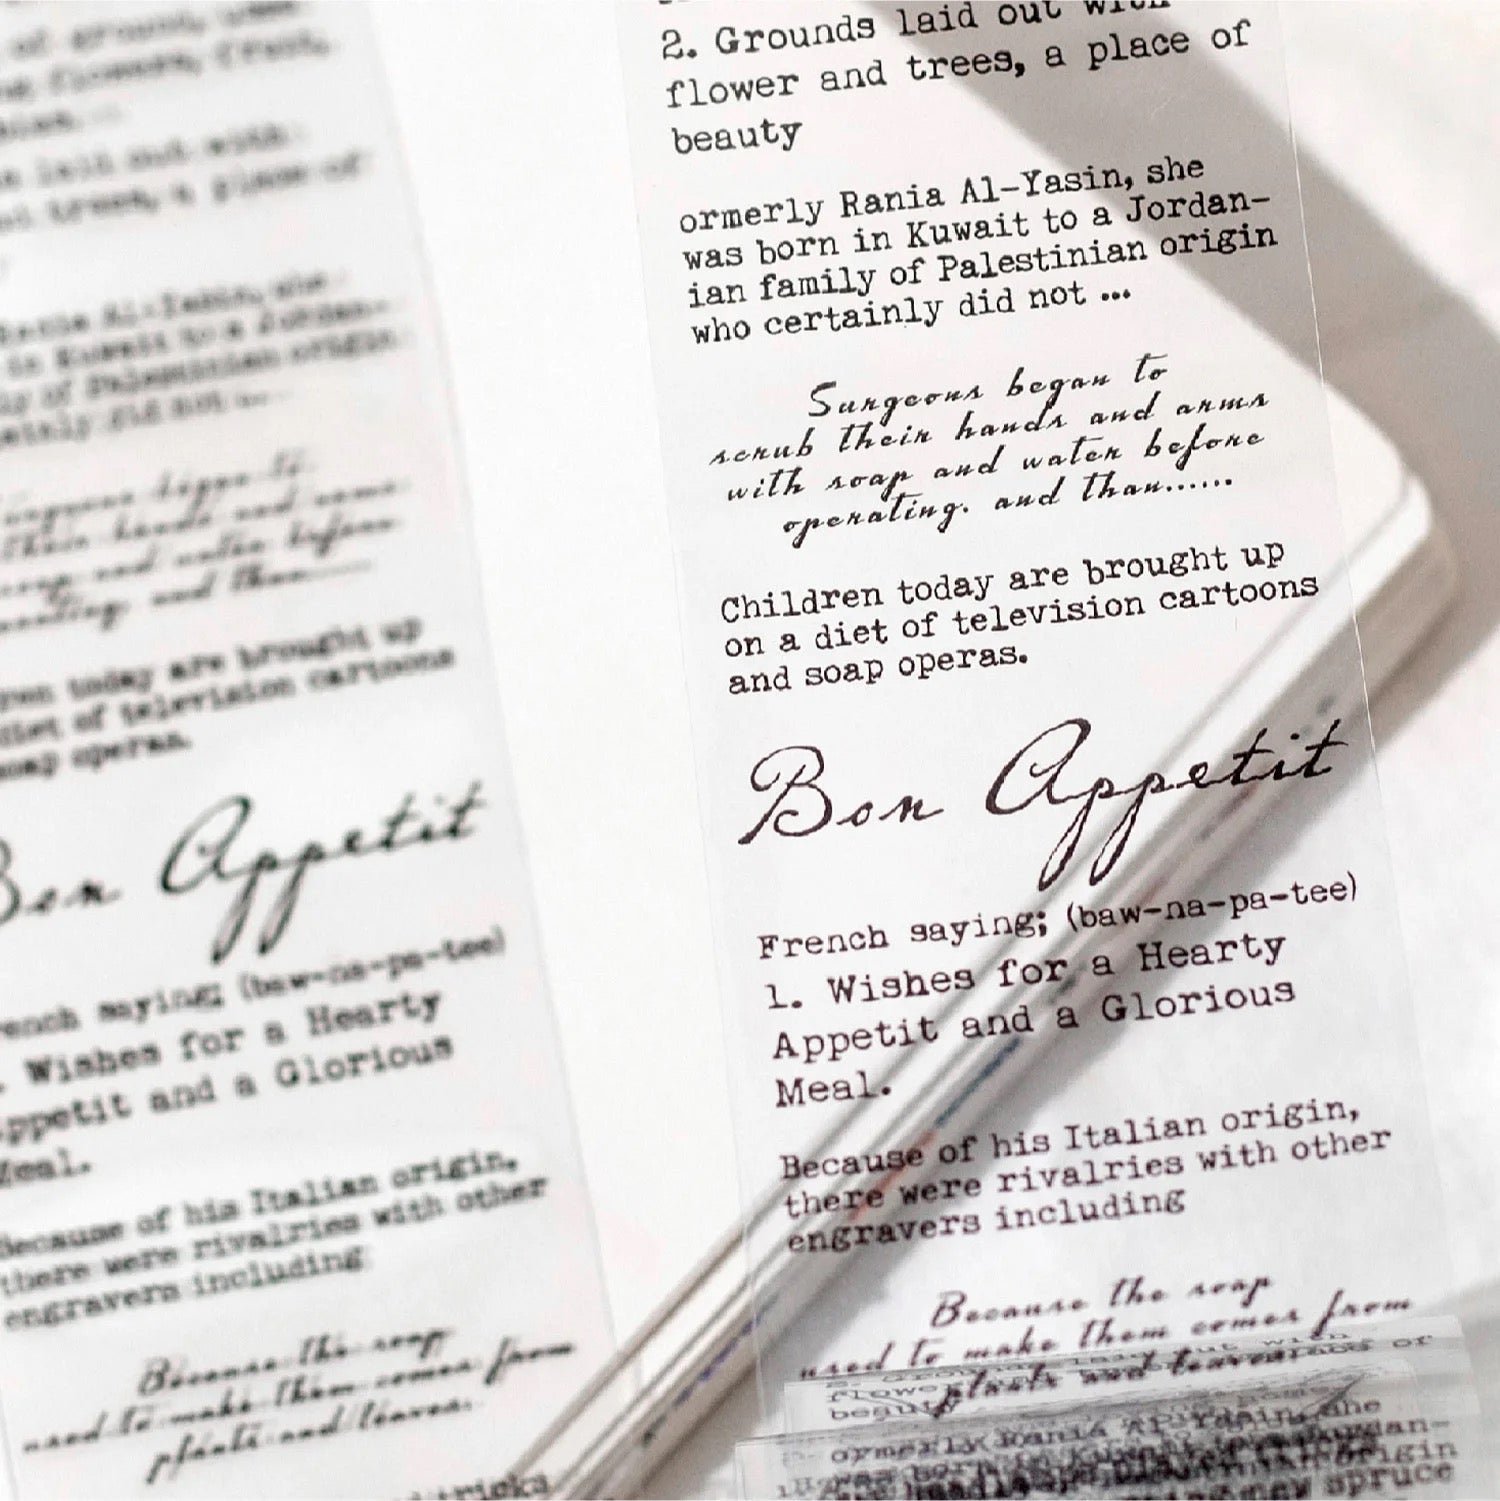 2. Grounds laid out with
flower and trees, a place of
beauty
ormerly Rania Al-Yasin, she
was born in Kuwait to a Jordan-
ian family of Palestinian origin
who certainly did not ...
Surgeons began to
scrub their hands and arms
with soap and water before
operating. and than......
Children today are brought up
on a diet of television cartoons
and soap operas.
Bon Appetit
French saying; (baw-na-pa-tee)
1. Wishes for a Hearty
Appetit and a Glorious
Meal.
Because of his Italian origin,
there were rivalries with other
engravers including
Because the soap
used to make them comes from
plants and
of ground,
flowers, fruit,
laid out with
trees, a place of
Rania Al-Yasin, she
in Kuwait to a Jordan-
of Palestinian origin
did not ...
began to
their hands and arms
soap and water before
and than......
today are brought up
diet of television cartoons
soap operas.
Bon Appetit
saying; (baw-na-pa-tee)
Wishes for a Hearty
ppetit and a Glorious
Meal.
Because of his Italian origin,
there were rivalries with other
engravers including
Because the soap
used to make them comes from
plants and leaves.